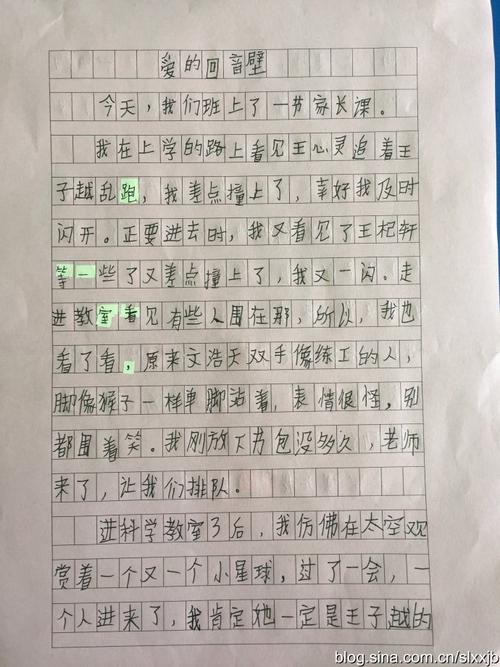 爱的回音壁
今天，我们班上了一节家长课。
我在上学的路上看见王心灵追着王
子越乱跑，我差点撞上了，幸好我及时
闪开。正要进去时，我又看见了王杞轩
等一些了又差点撞上了，我又一闪。走
进教室看见有些人围在那，所以，我也
看了看，原来文浩天双手像练工的人，
脚像猴子一样单脚站着，表情很怪，别
都围着笑。我刚放下书包没多久，老师
来了，让我们排队。
进科学教室了后，我仿佛在太空观
赏着一个又一个小星球，过了一会，一
个人进来了，我肯定她一定是王子越的
blog.sina.com.cn/slxxjb